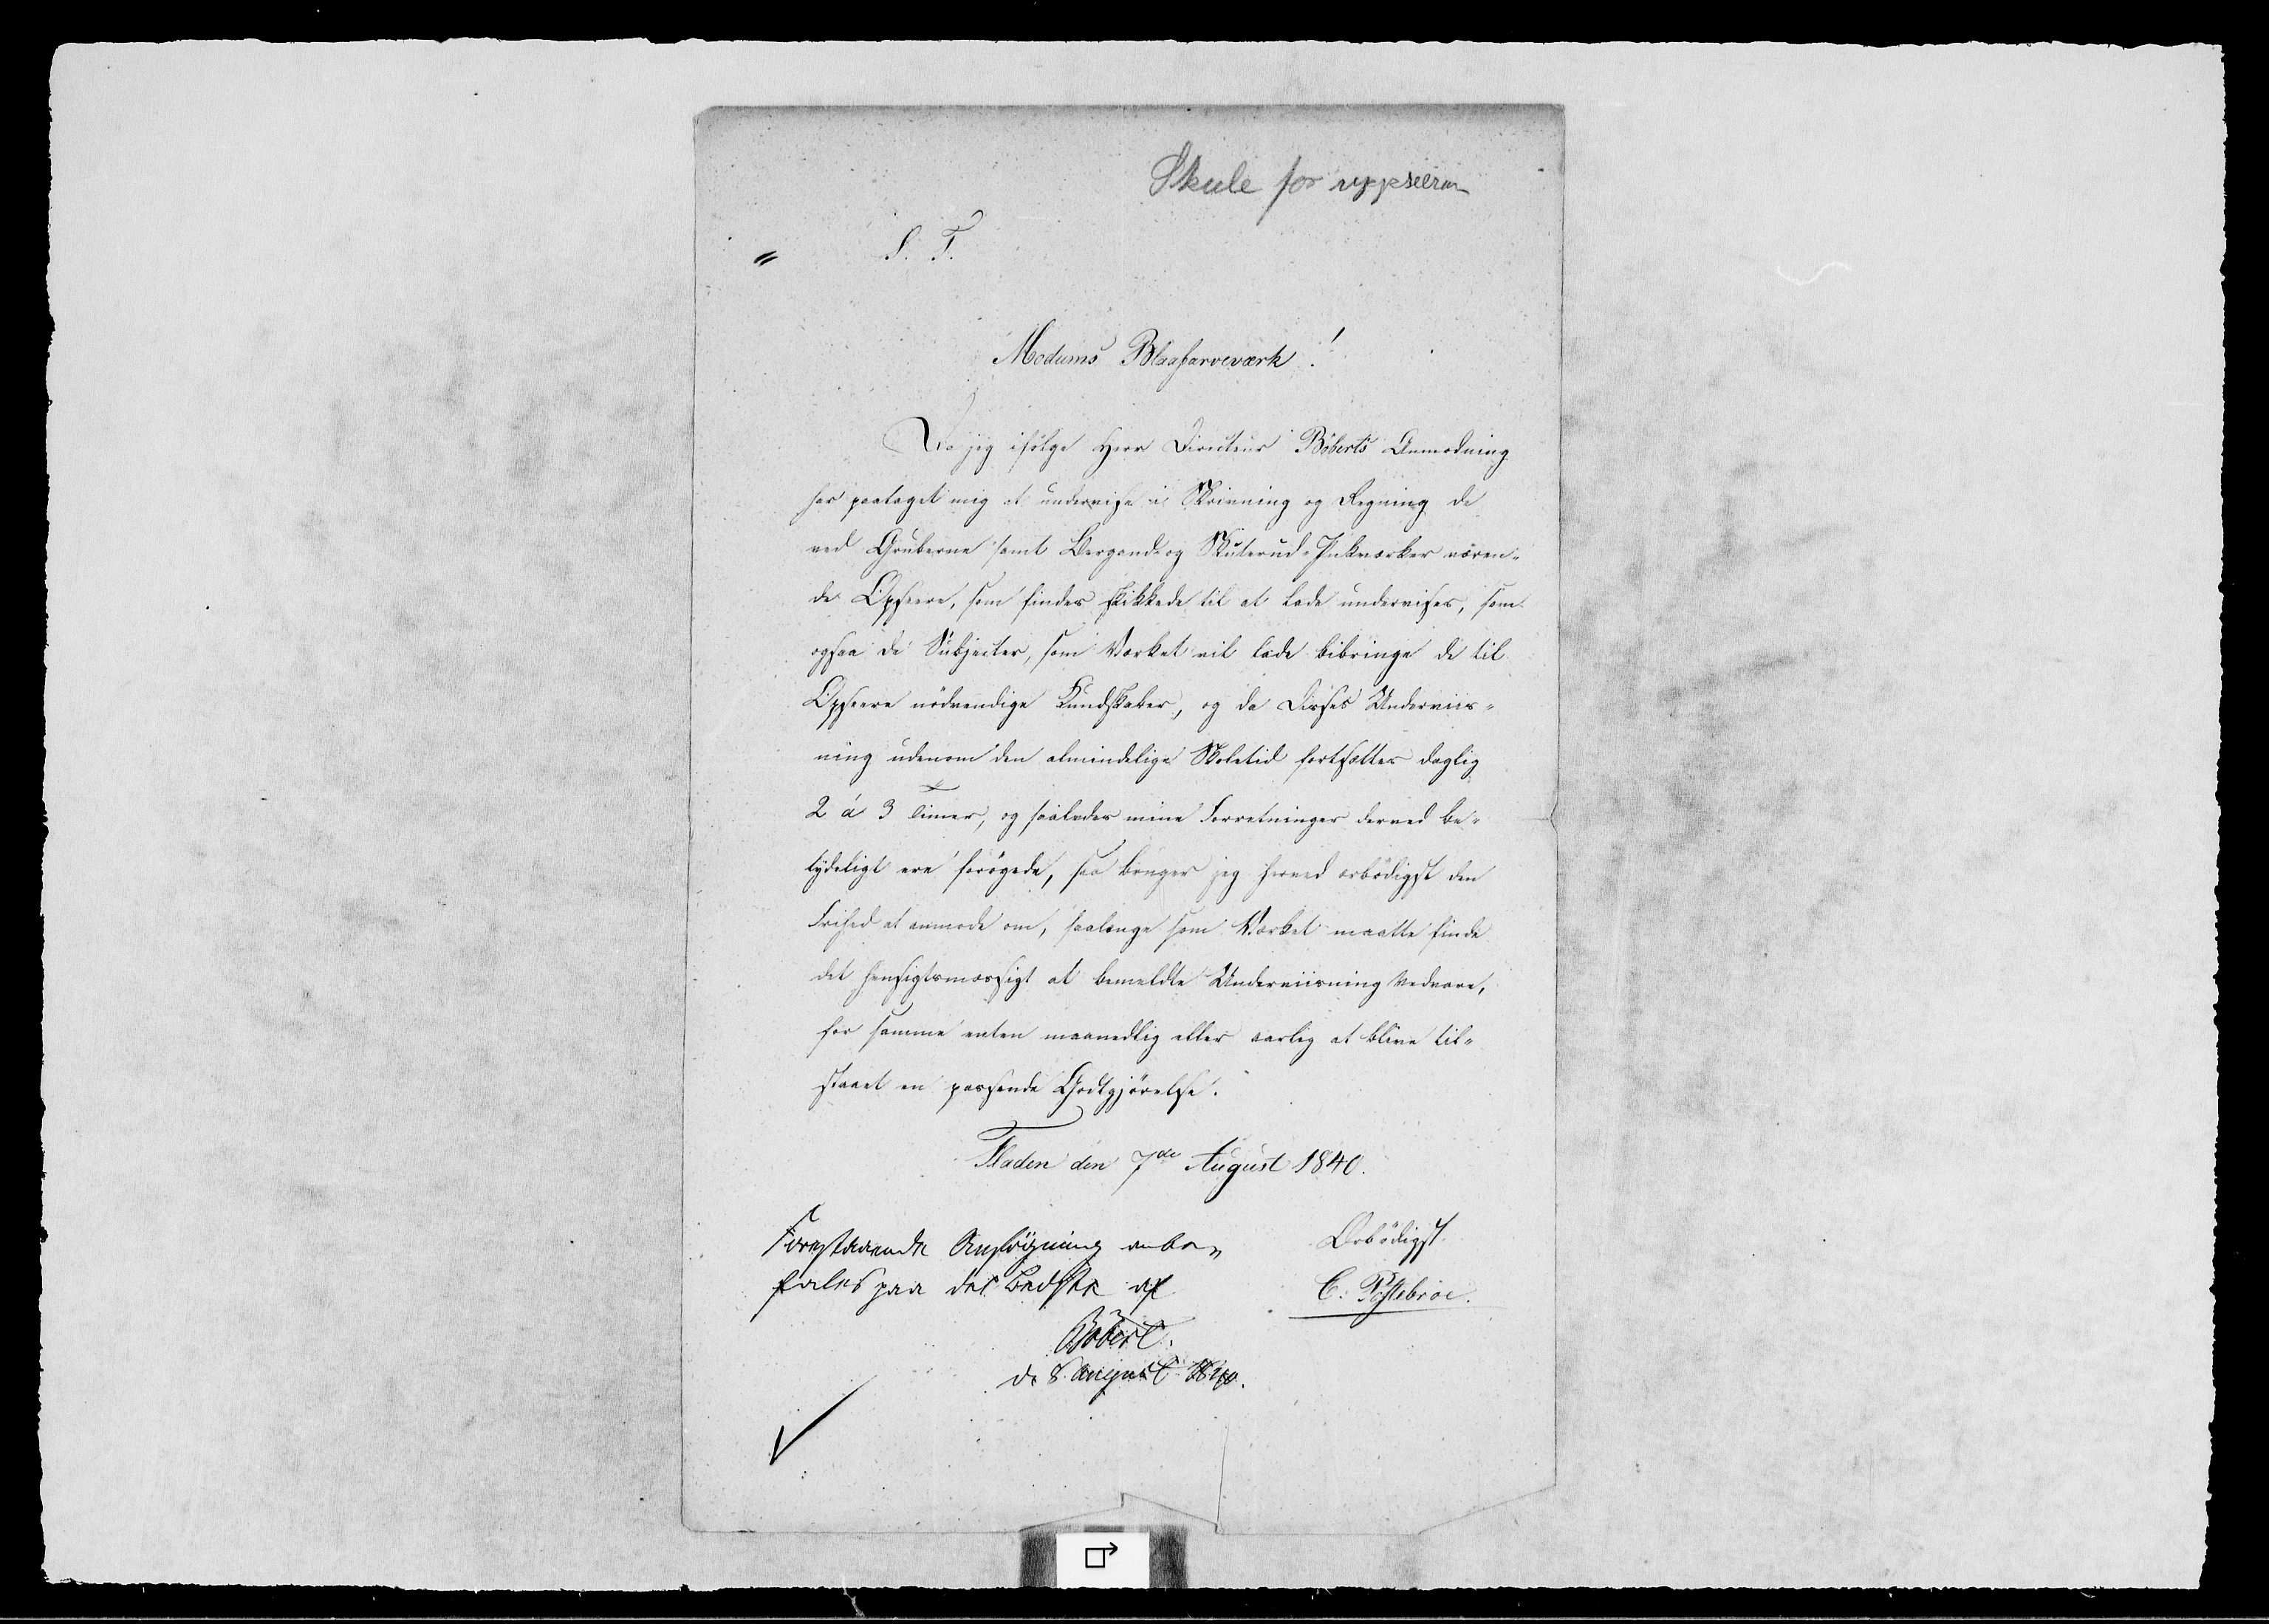 Skule for uppseerar
S. T.
Modums Blaafarveværk!
Da jeg ifølge Herr Directeur Böberts Anmodning
har paataget mig at undervise i Skrivning og Regning de
ved Gruberne samt Bergand- og Skuterud-Pukværker væren-
de Opseere, som findes skikkede til at lade undervises, som
ogsaa de Subjecter, som Værket vil lade bibringe de til
Opseere nödvendige Kundskaber, og da Disses Underviis-
ning udenom den almindelige Skoletid fortsættes daglig
2 á 3 Timer, og saaledes mine Forretninger derved be-
tydeligt ere forögede, saa bruger jeg herved ærbödigst den
Frihed at anmode om, saalænge som Værket maatte finde
det hensigtsmæssigt at bemeldte Underviisning vedvare,
for samme enten maanedlig eller aarlig at blive til-
staaet en passende Godtgjörelse.
Fladen den 7de August 1840.
Ærbödigst
C. Pöstebröe.
Forestaaende Ansögning anbe-
fales paa det Bedste af
Böbert.
d. 8 August 1840.